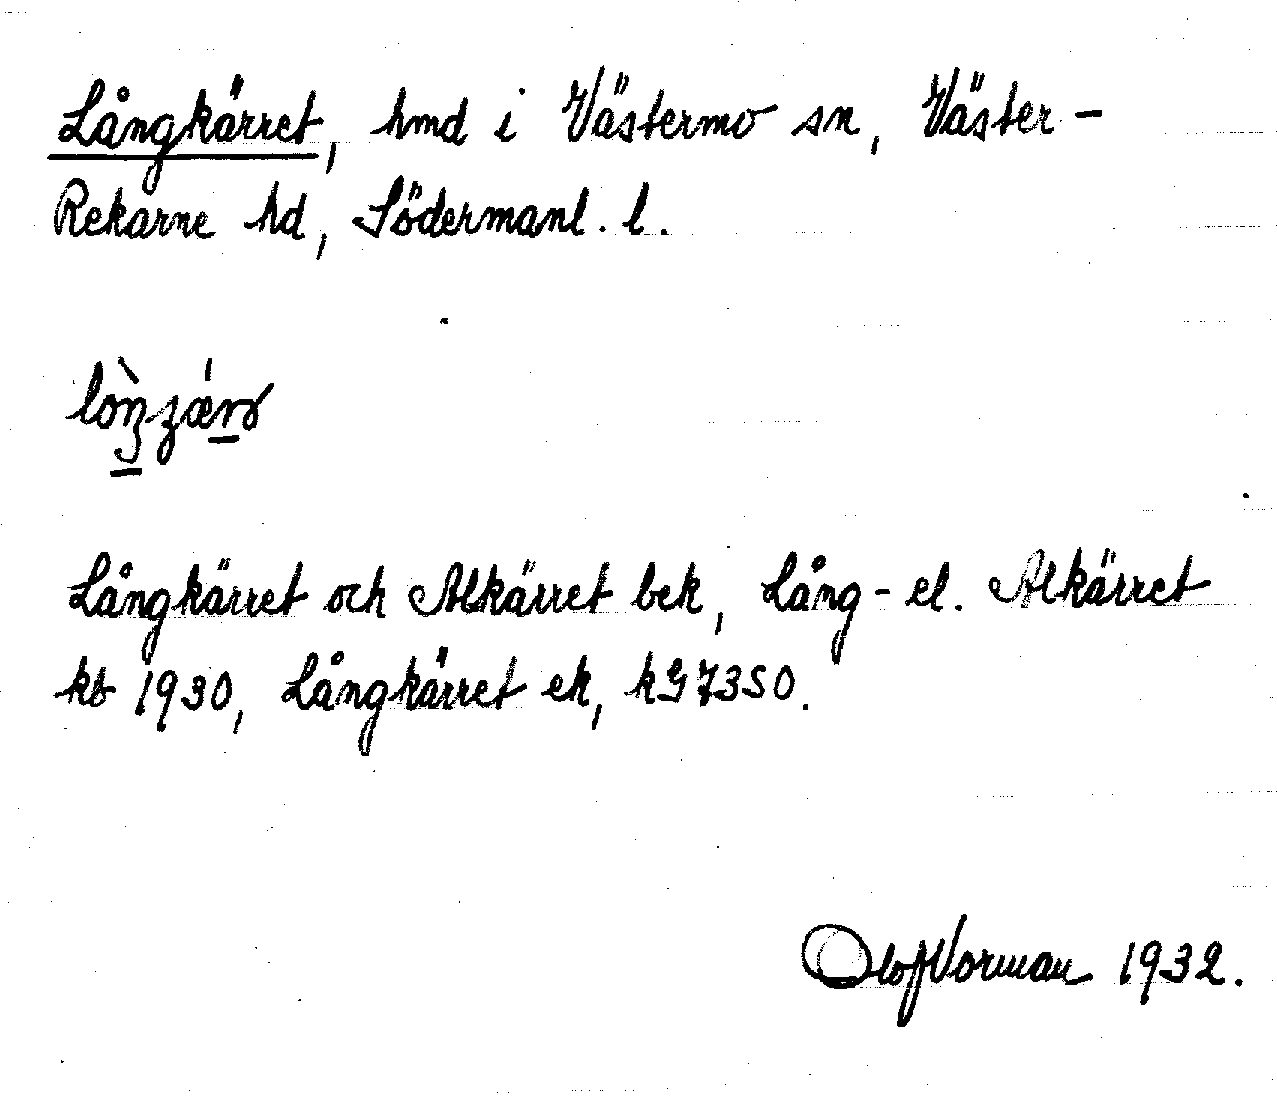 Långkärret, hmd i Västermo sn, Väster-
Rekarne hd, Södermanl. l.
Långkärret och Alkärret bek, Lång- el. Alkärret
kb 1930, Långkärret ek, kG 7350.
Olof Vorman 1932.